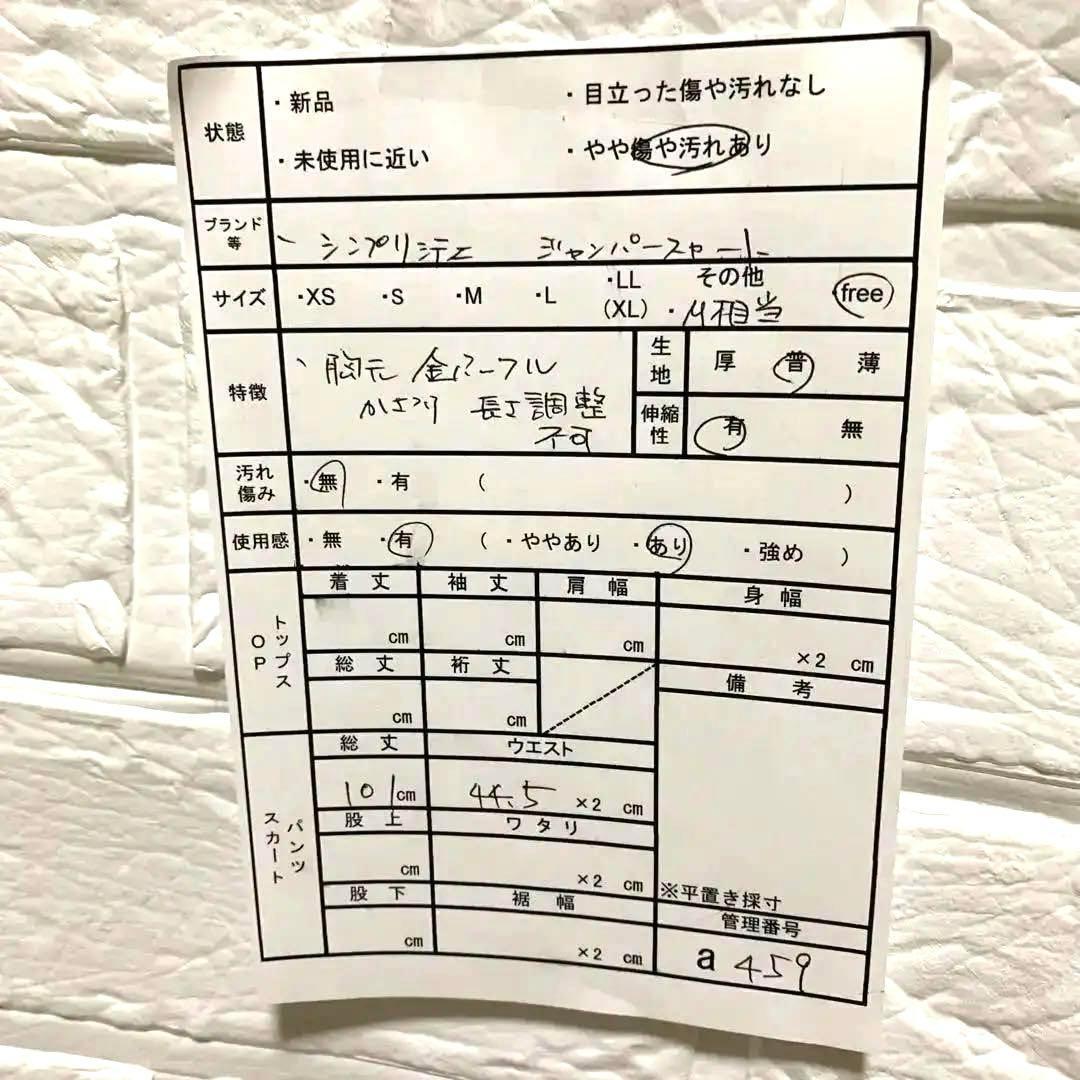 状態
・新品
・目立った傷や汚れなし
・未使用に近い
・やや傷や汚れあり
ブランド等
シンプリシテェ ジャンパースカート
サイズ
・XS ・S ・M ・L ・LL (XL) その他 ・M相当 free
特徴
胸元 金パープル
かざり 長さ調整
不可
生地
厚 普 薄
伸縮性
有 無
汚れ傷み
・無 ・有 ( )
使用感
・無 ・有 ( ・ややあり ・あり ・強め )
トップス OP
着丈 袖丈 肩幅 身幅
cm cm cm ×2 cm
総丈 裄丈 備考
cm cm
パンツ スカート
総丈 ウエスト
101cm 44.5 ×2 cm
股上 ワタリ
cm ×2 cm
※平置き採寸
股下 裾幅 管理番号
cm ×2 cm a 459